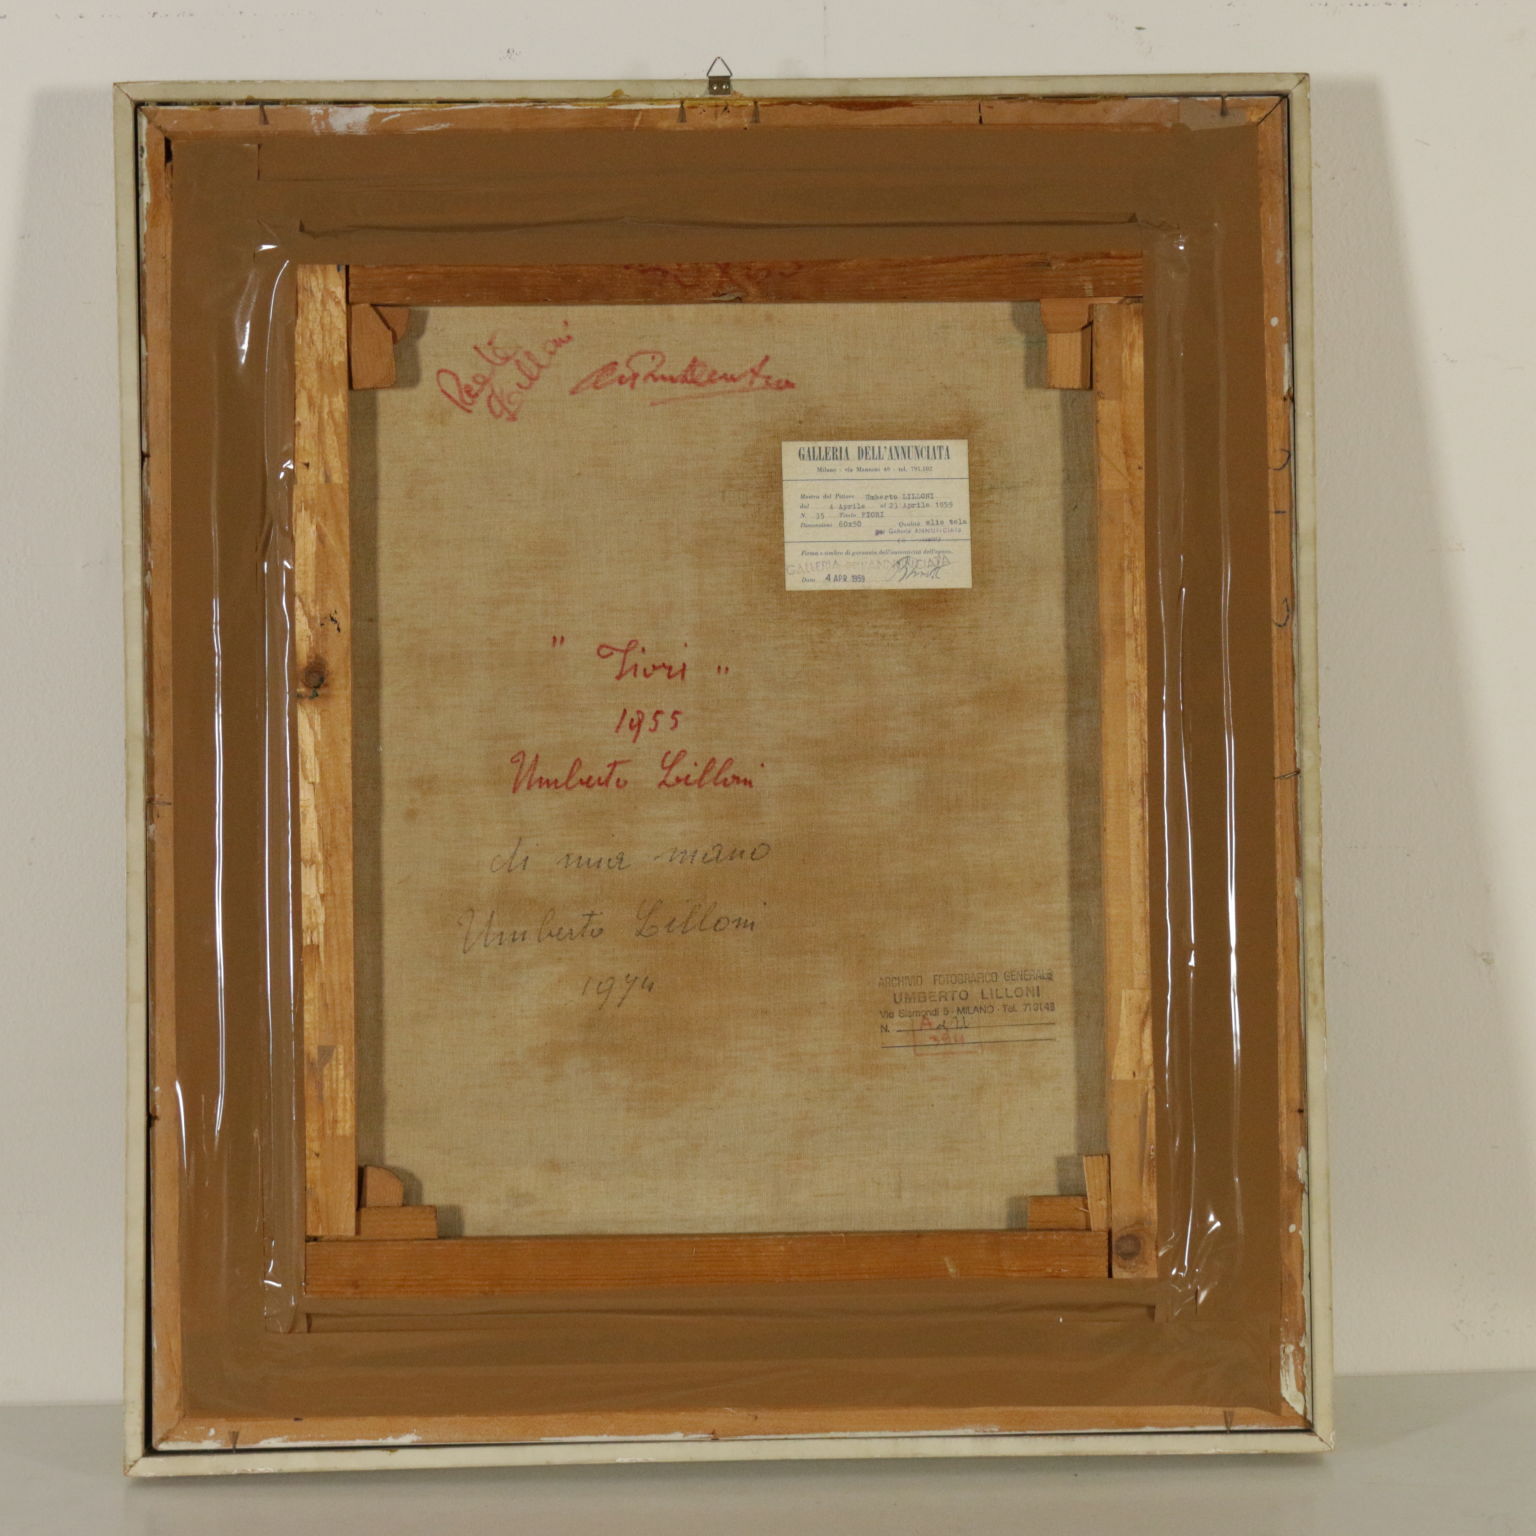 GALLERIA DELL'ANNUNCIATA
Milano - via Manzoni 46 - tel. 791.102
Mostra del Pittore Umberto LILLONI
dal 4 Aprile al 23 Aprile 1959
N. 35 Titolo FIORI
Dimensioni 60x50 Qualità olio tela
per Galleria ANNUNCIATA
Firma e timbro di garanzia dell'autenticità dell'opera.
GALLERIA DELL'ANNUNCIATA
Data 4 APR. 1959
" Fiori "
1955
Umberto Lilloni
di mia mano
Umberto Lilloni
1974
ARCHIVIO FOTOGRAFICO GENERALE
UMBERTO LILLONI
Via Sismondi 5 - MILANO - Tel. 719148
N.